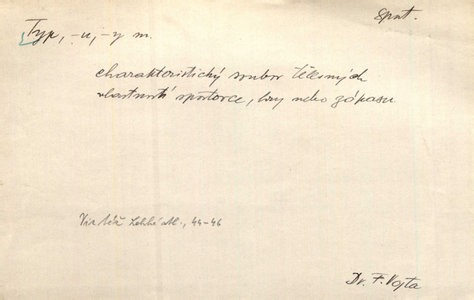 sport.
Typ, -u, -y m.
charakteristický soubor tělesných
vlastností sportovce, hry nebo zápasu
Viz též Lehká atl., 44-46
Dr. F. Vojta